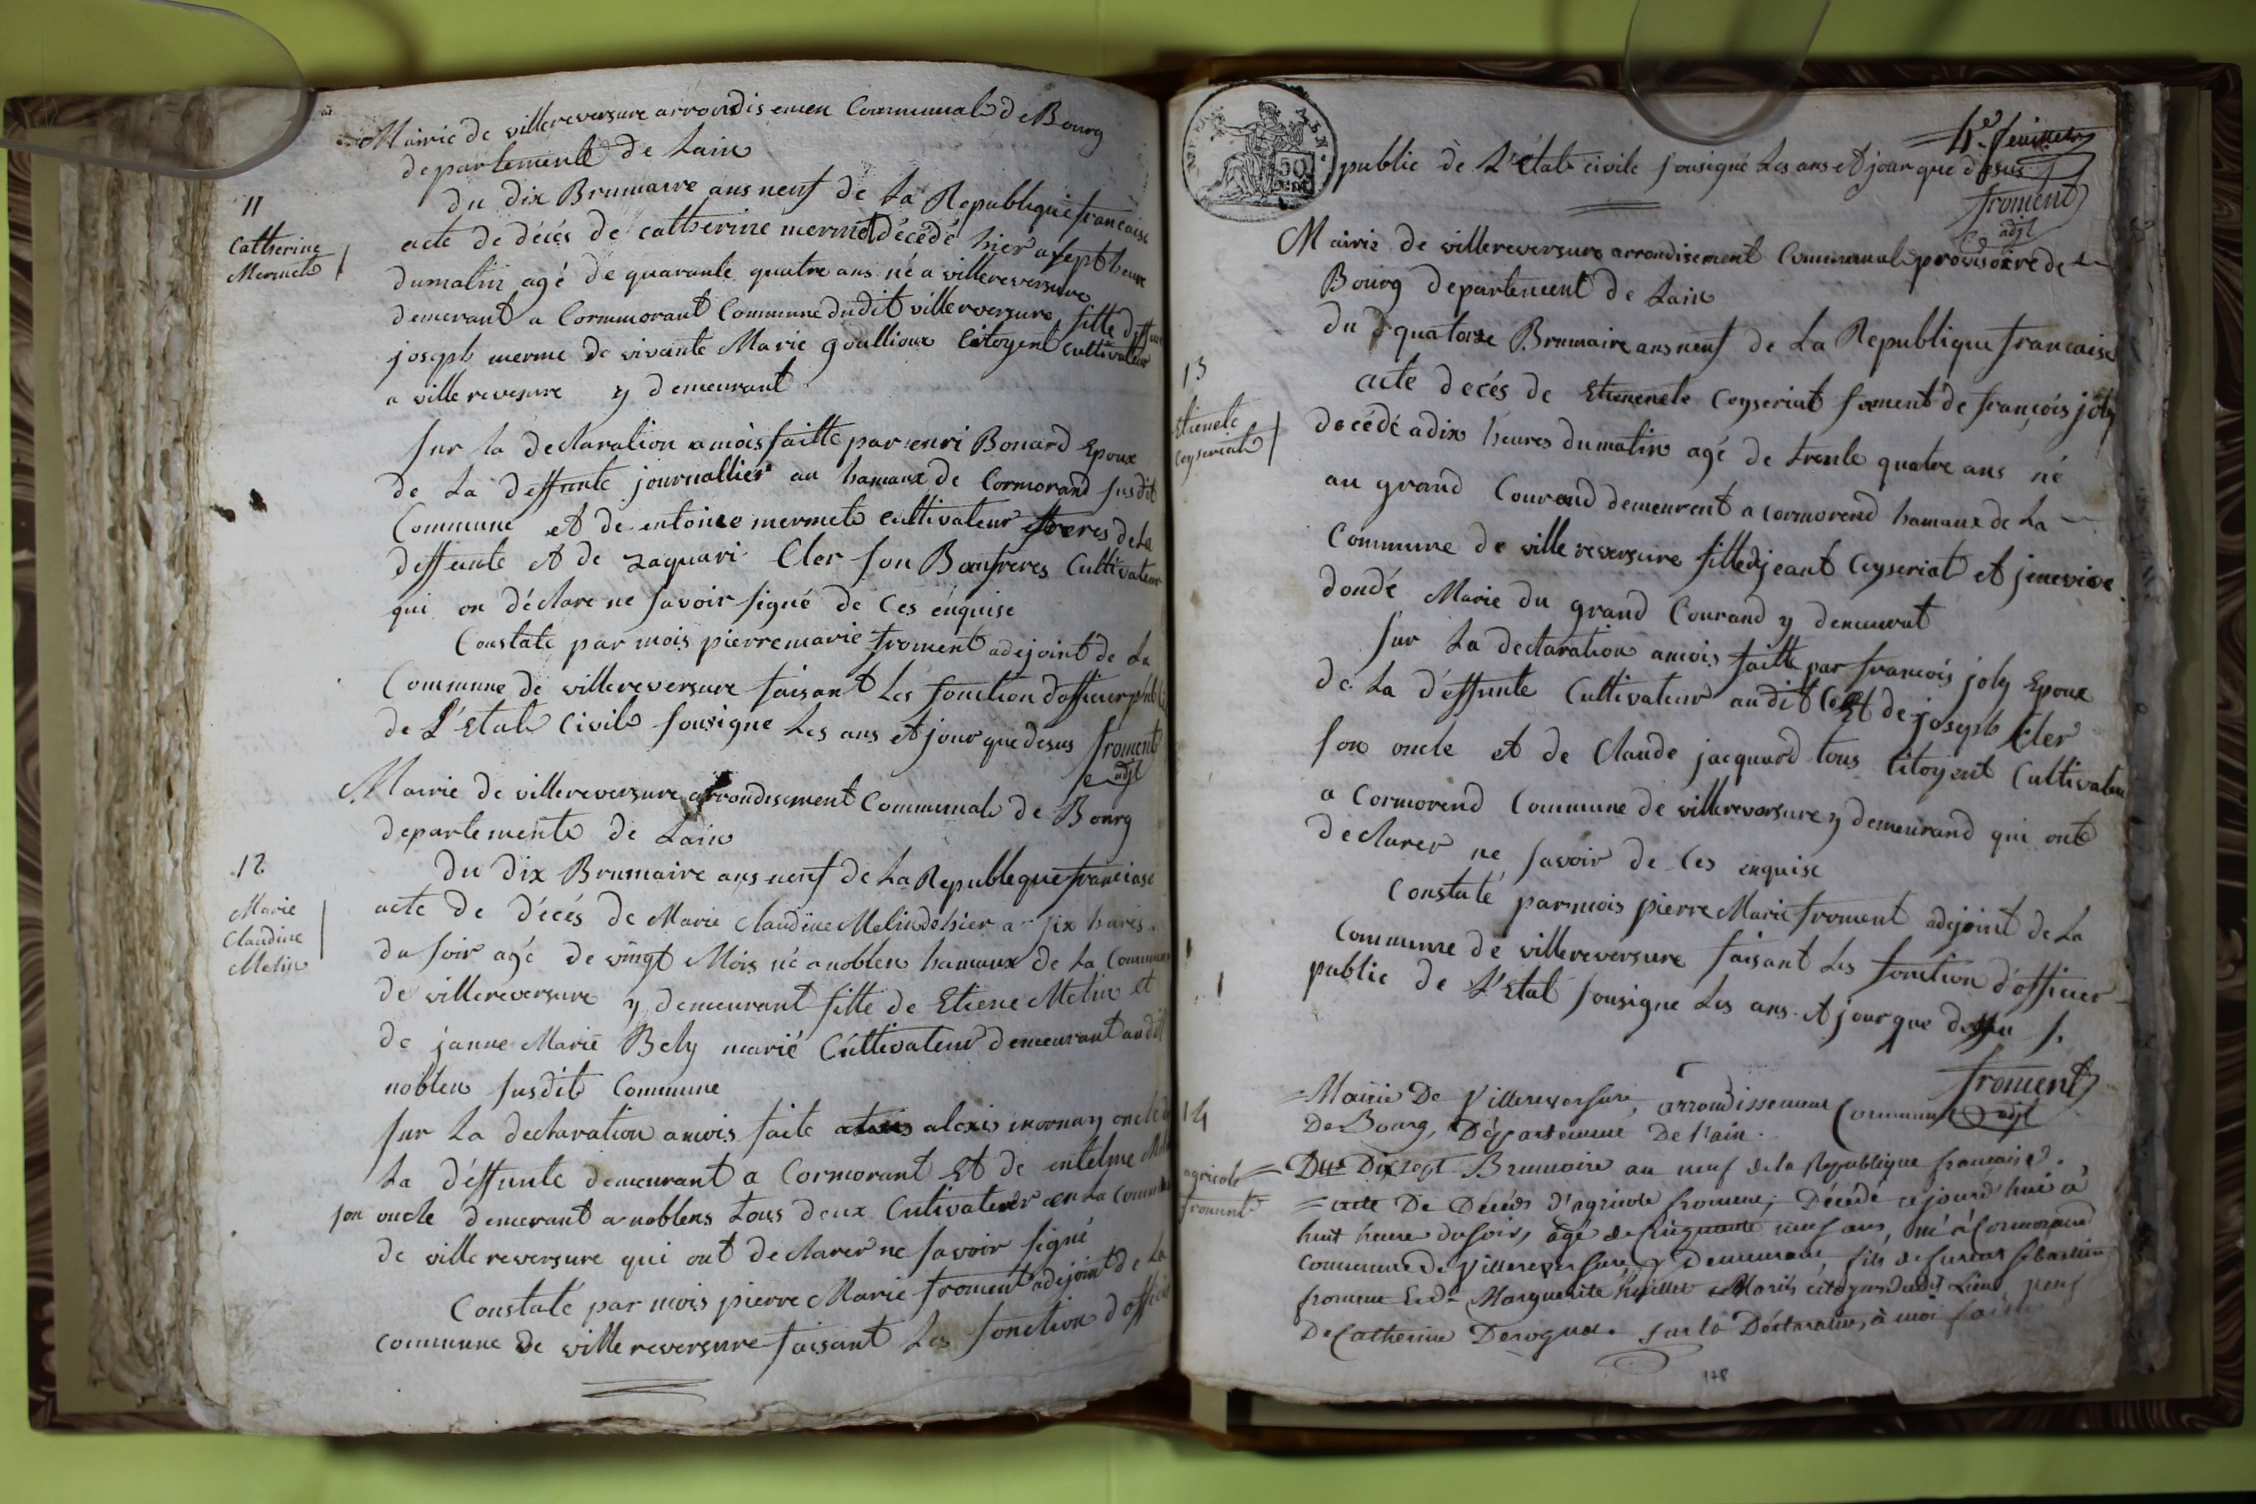 Mairie de villereversure arrondis emen Communal de Bourg
departement de Lain
11
Catherine
Mermet
du dix Brumaire ans neuf de La Republique francaise
acte de décés de catherine mermet décédé hier a sept heure
du matin agé de quarante quatre ans né a villereversure
demerant a Cormmorant Commune dudit villerversure fille deffun
joseph merme de vivante Marie goullioux Citoyent Cultivateur
a ville revesure y demeurant
sur la declaration a mois faitte par enri Bonard Epoux
de La deffunte journallier au hamaux de Cormorand susdit
Commune et de entoine mermet cultivateur freres dela
deffunte et de zaquari Cler son Baufreres Cultivateur
qui on déclare ne savoir signé de Ces énquise
Constate par mois pierre marie froment adejoint de La
Commune de villereversure faisant Les fonction dofficier publi
de L'Etat Civile sousigne Les ans et jour que desus froment
adjt
Mairie de villereversure arrondisement Communal de Bourg
departemente de Lain
12
Marie
Claudine
Melin
du dix Brumaire ans neuf de La Republeque franciase
acte de décés de Marie Claudine Melin de hier a six hures
du soir agé de vingt Mois né a noblen hamaux de La Commune
de villereversure y demeurant fille de Etiene Melin et
de janne Marie Bely marié Cultivateur demeurant au dit
noblen susdite Commune
sur La declaration a mois faite alexis mornay oncle d
La déffunte demeurant a Cormorant Et de entelme Me
son oncle demerant a noblens tous deux Cultivateur en La Commune
de ville reversure qui ont declarer ne savoir signé
Constaté par mois pierre Marie froment adejoint de La
commune de ville reversure faisant Les fonction d'offici
4e feuillet
public de L'état civile sousigné Les ans et jour que desus
froment
adjt
Mairie de villereversure arrondisement Communal provisoire de
Bourg departement de Lain
13
Etienete
Ceyseriat
du quatorze Brumaire ans neuf de La Republique francaise
acte decés de Etienenete Ceyseriat foment de françois joly
decédé a dix heures du matin agé de trente quatre ans né
au grand Courand demeurent a cormorend hamaux de La
Commune de ville reversure fille de jeant Ceyseriat et jenevieve
dondé Marie du grand Courand y demeurat
sur La declaration a mois faitte par francois joly Epoux
de La déffunte Cultivateur audit et de joseph Cler
son oncle et de Claude jacquard tous Citoyent Cultivateur
a Cormorend Commune de villereversure y demeurand qui onte
declarer ne savoir de Ces enquise
Constaté par mois pierre Marie froment adejoint de La
Commune de villereversure faisant Les fonction d'officier
public de L'Etat sousigne Les ans et jour que
froment
adjt
14
agricole
froment
Mairie De Villereversure, arrondissement Communal
De Bourg, Département De l'ain.
Du Dixsept Brumaire an neuf de la République francaise.
acte De Décés d'agricole froment, Décédé ce jourd'hui à
huit heure du soir, agé de Cinquante neuf ans, né à Cormorand
Commune De Villereversure y demeurant, fils de furent sébastien
froment Et de Marguerite huillet Mariés citoyens dudit Lieu, veuf
De Catherine Derognat. sur la Déclaration à moi faite
178